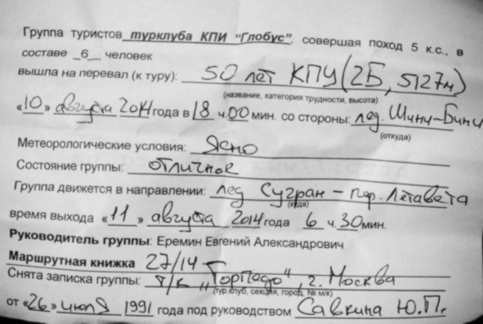 Группа туристов турклуба КПИ "Глобус", совершая поход 5 к.с., в
составе _6_ человек
вышла на перевал (к туру): 50 лет КПУ (2Б, 5127м)
(название, категория трудности, высота)
«10» августа 2014 года в 18 ч 00 мин. со стороны: лед. Шини-Бини
(откуда)
Метеорологические условия: Ясно
Состояние группы: отличное
Группа движется в направлении: лед Сугран – пер. Летавета
(куда)
время выхода «11» августа 2014 года 6 ч. 30 мин.
Руководитель группы: Еремин Евгений Александрович
Маршрутная книжка 27/14
Снята записка группы: т/к "Торпедо", г. Москва
(тур.клуб, секция, город, № м/к)
от «26» июля 1991 года под руководством Савкина Ю.П.